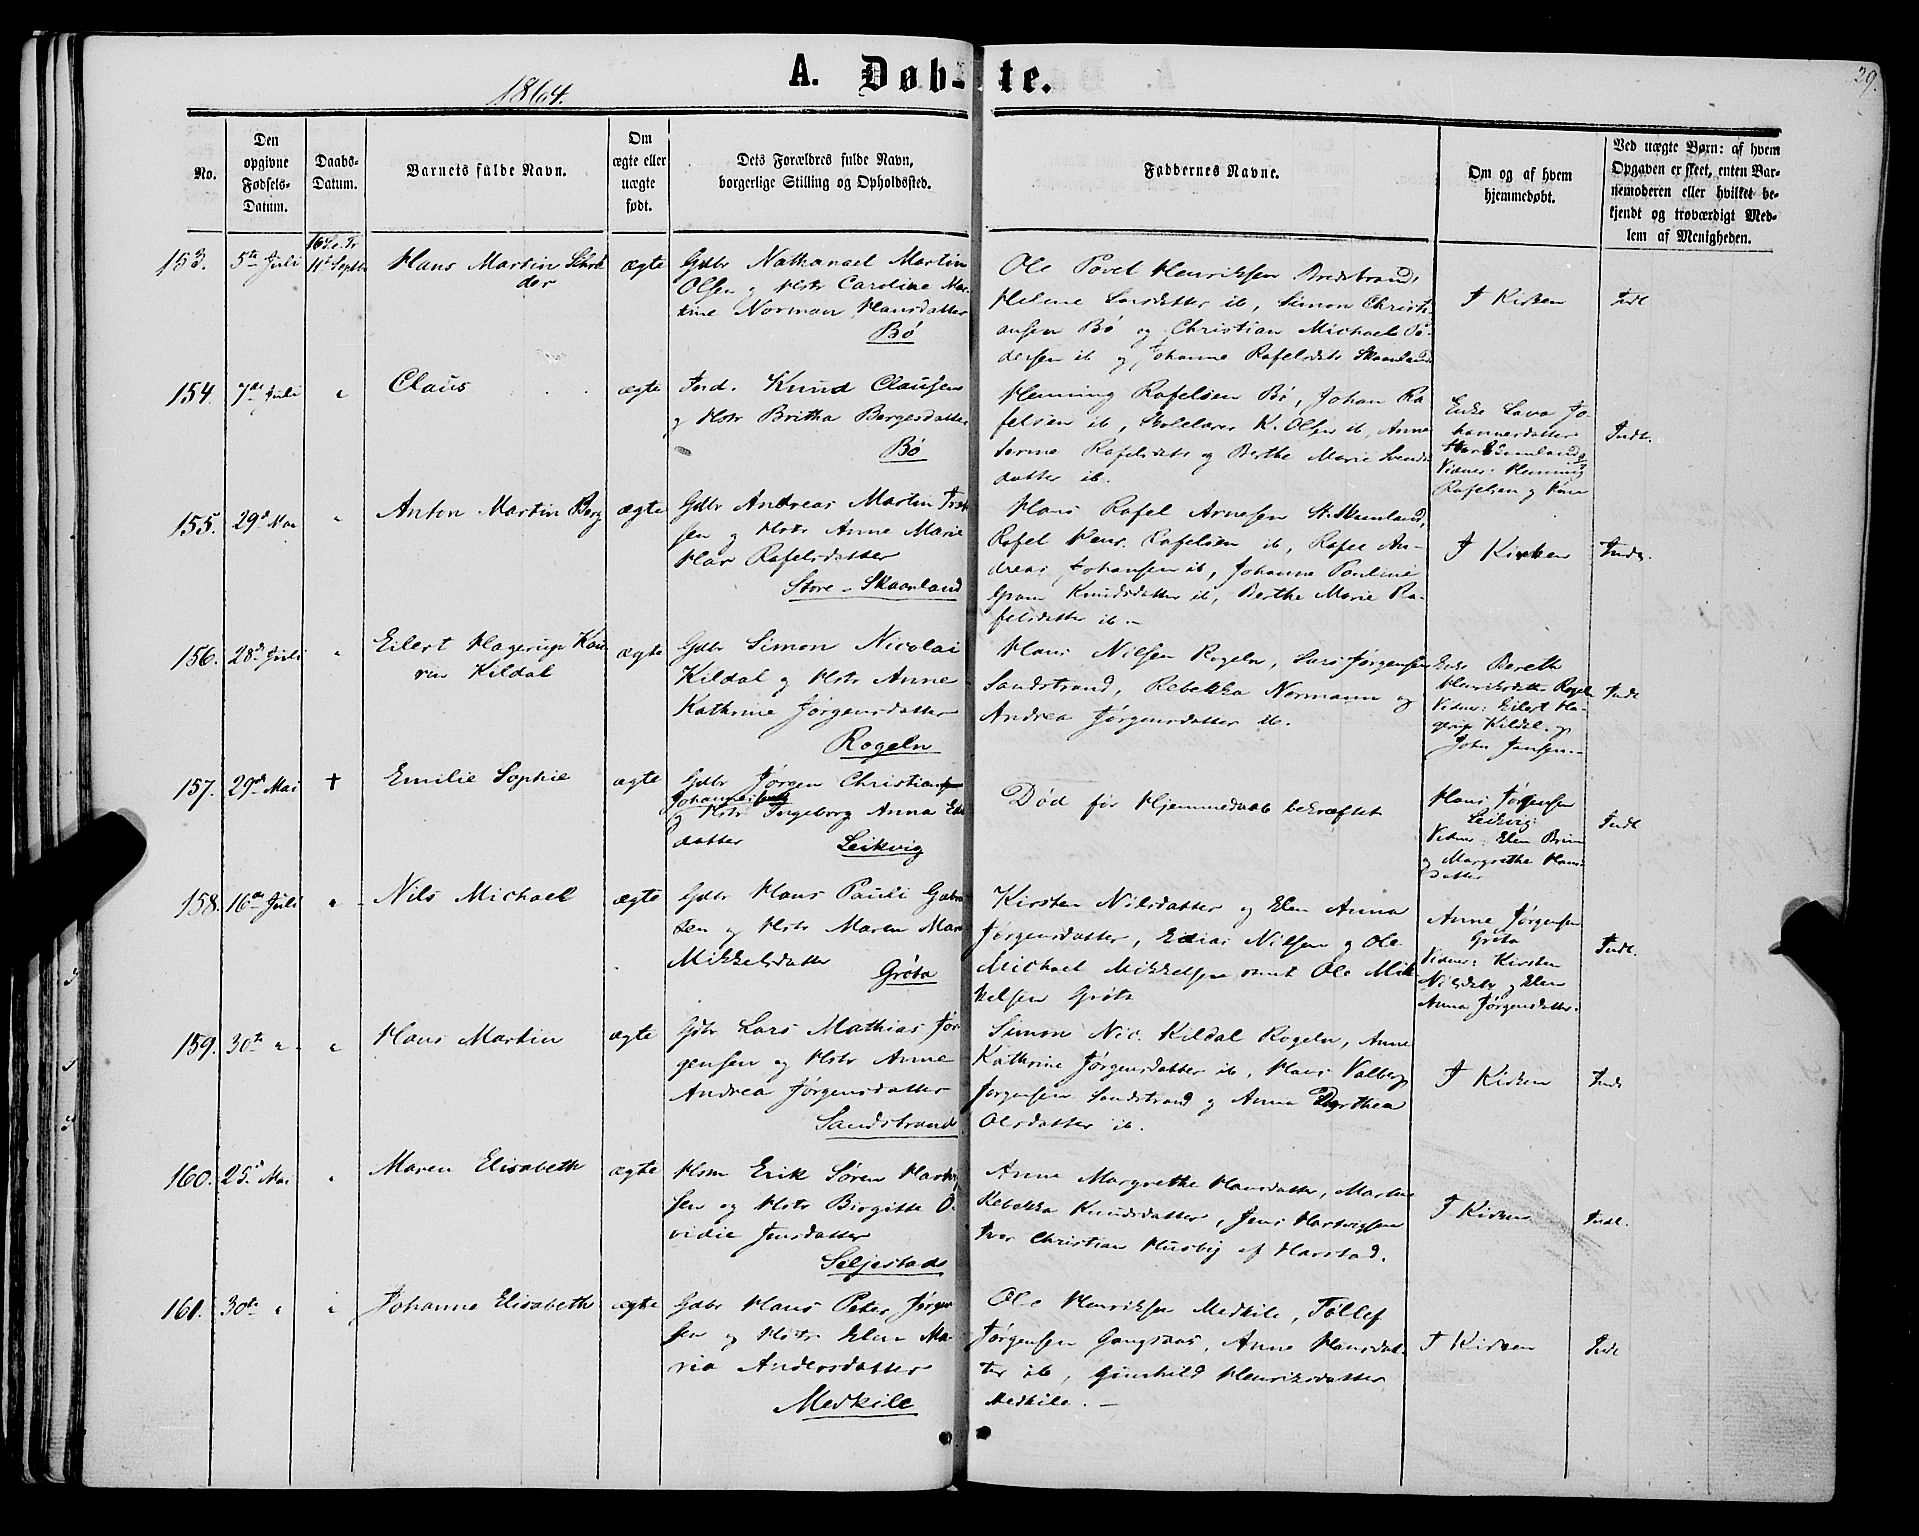 A. Døbte.
1864.
39.
No.
Den opgivne Fødsels-Datum.
Daabs-Datum.
Barnets fulde Navn.
Om ægte eller uægte født.
Dets Forældres fulde Navn, borgerlige Stilling og Opholdssted.
Faddernes Navne.
Om og af hvem hjemmedøbt.
Ved uægte Børn: af hvem Opgaven er skeet, enten Barnemoderen eller hvilket bekjendt og troværdigt Medlem af Menigheden.
153. 5te Juli
16 S. e. Tr. 11te Septbr
Hans Martin Schrøder
ægte
Gdbr Nathanael Martin
Olsen og Hstr Caroline Mar-
tine Norman Hansdatter
Bø
Ole Povel Henriksen Bredstrand,
Helene Larsdatter ib, Simon Christi-
ansen Bø og Christian Michael Pe-
dersen ib og Johanne Rafelsdtr Skaanland
I Kirken
Indl
154. 7de Juli "
Claus
ægte
Ind. Knud Clausen
og Hstr Britha Borgersdatter
Bø
Henning Rafelsen Bø, Johan Ra-
felsen ib, Skolelærer K. Olsen ib, Anne
Rafelsdtr og Berthe Marie Svends-
datter ib.
Enke Lava Jo-
hannesdatter
Vidner: Henning
Rafelsen og
Indl.
155. 29d Mai "
Anton Martin Berg
ægte
Gdbr Andreas Martin
sen og Hstr Anne Marie
Rafelsdatter
Store-Skaanland
Hans Rafel Arnesen St. Skaanland,
Rafel Henr. Rafelsen ib, Rafel An-
dreas Johansen ib, Johanne Pauline
Gram Knudsdatter ib, Berthe Marie Ra-
felsdatter ib.-
I Kirken
Indl.
156. 28d Juli "
Eilert Hagerup Kau-
rin Kildal
ægte
Gdbr Simon Nicolai
Kildal og Hstr Anne
Kathrine Jørgensdatter
Rogeln
Hans Nilsen Rogeln, Lars Jørgensen
Sandstrand, Rebekka Normann og
Andrea Jørgensdatter ib.
Enke Bereth
Henriksdatter Rogeln
Vidner: Eilert Ha-
gerup Kildal og
John Jensen.
Indl
157. 29d Mai †
Emilie Sophie
ægte
Gdbr Jørgen Christian
og Hstr Ingeborg Anna
datter Leikvig
Død før Hjemmedaab bekræftet
Hans Jørgensen
Leikvig:
Vidner: Elen
og Margrethe Hans-
datter
Indl
158. 16de Juli "
Nils Michael
ægte
Gdbr Hans Pauli
sen og Hstr Maren
Mikkelsdatter Grøta
Kirsten Nilsdatter og Elen Anna
Jørgensdatter, Edias Nilsen og Ole
Michael Mikkelsen samt Ole Mik-
kelsen Grøta
Anne Jørgensen
Grøta
Vidner: Kirsten
Nilsdatr og Elen
Anna Jørgensdatter.
Indl.
159. 30te " "
Hans Martin
ægte
Gdbr Lars Mathias Jør-
gensen og Hstr Anne
Andrea Jørgensdatter
Sandstrand
Simon Nic. Kildal Rogeln, Anne
Kathrine Jørgensdatter ib, Hans Valberg
Jørgensen Sandstrand og Anna Dorthea
Olsdatter ib.
I Kirken
Indl
160. 25d Mai "
Maren Elisabeth
ægte
Hsm Erik Søren Hartvig-
sen og Hstr Birgitte O-
vidie Jensdatter
Seljestad
Anne Margrethe Hansdatter, Martine
Rebekka Knudsdatter, Jens Hartvigsen
Iver Christian Husby af Harstad.
I Kirken
Indl.
161. 30te " "
Johanne Elisabeth
ægte
Gdbr Hans Peter Jørgen-
sen og Hstr Elen Ma-
ria Andersdatter
Medkile
Ole Henriksen Medkile, Tollef
Jørgensen Gangsaas, Anne Hansdat-
ter ib, Gunhild Henriksdatter
Medkile. -
I Kirken
Indl